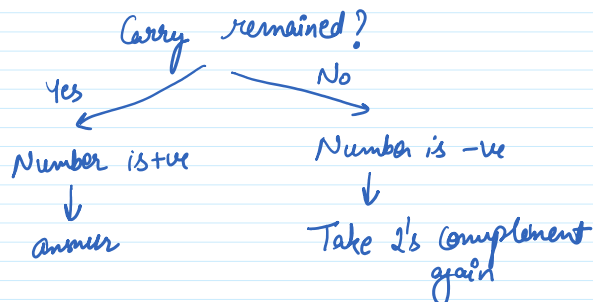 Carry remained?
Yes
No
Number is +ve
Number is -ve
answer
Take 2's complement
again